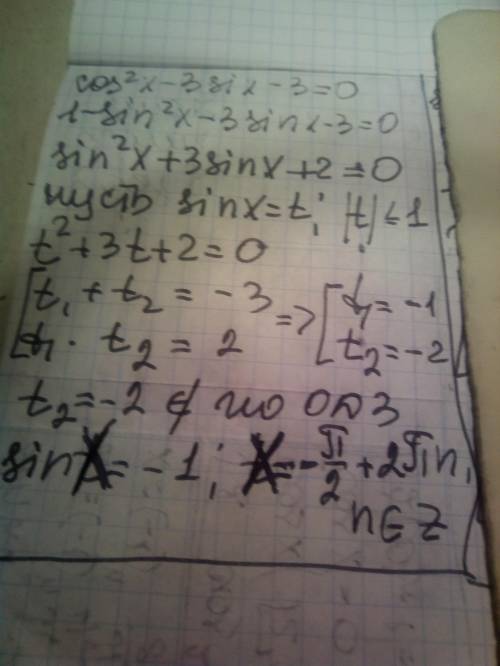 cos²x-3six-3=0
1-sin²x-3sinx-3=0
sin²x+3sinx+2=0
пусть sinx=t; |t|≤1
t²+3t+2=0
[t₁+t₂=-3 => [t₁=-1
t₁·t₂=2 t₂=-2
t₂=-2 ∉ по ОДЗ
sinx=-1; x=-π/2+2πn,
n∈Z